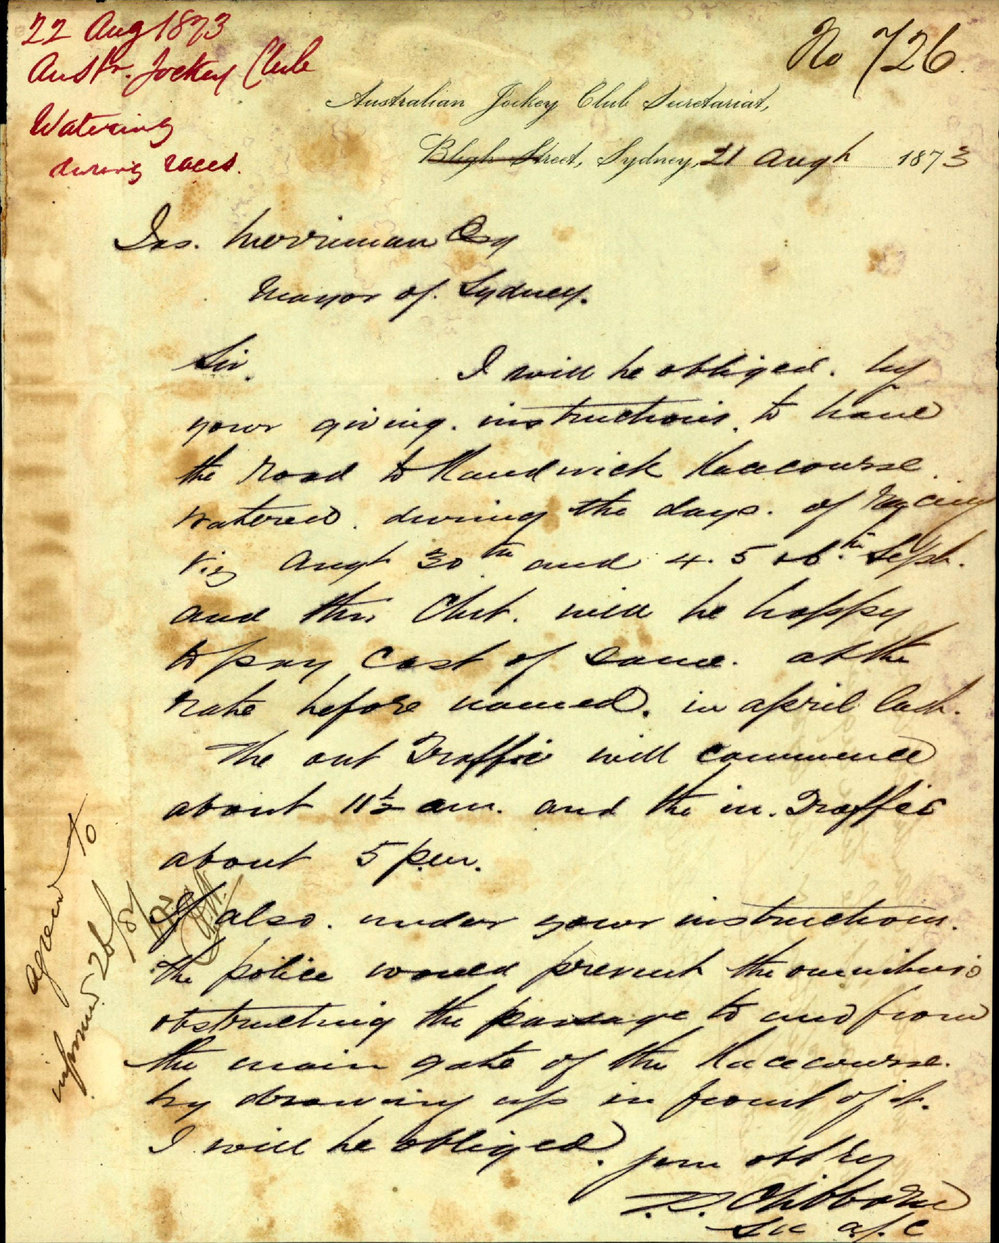 22 Aug 1873
Austr. Jockey Club
Watering
during races.
No 726.
Australian Jockey Club Secretariat,
Bligh Street, Sydney, 21 Augt 1873
Jas. Merriman Esq
Mayor of Sydney.
Sir, I will be obliged. by
your giving. instructions. to have
the road to Randwick Racecourse
watered. during the days. of racing
viz Augt 30th and 4. 5 & 6th Sept.
and this Club. will be happy
to pay cost of same. at the
rate before named. in April last.
The out Traffic will commence
about 11½ am. and the in. Traffic
about 5 pm.
If also. under your instructions.
the police would prevent the omnibus
obstructing the passage to and from
the main gate of the Racecourse.
by drawing up in front of it.
I will be obliged.
your obt
Clibborn
Sec A.J.C
agreed to
informed 26/8/73